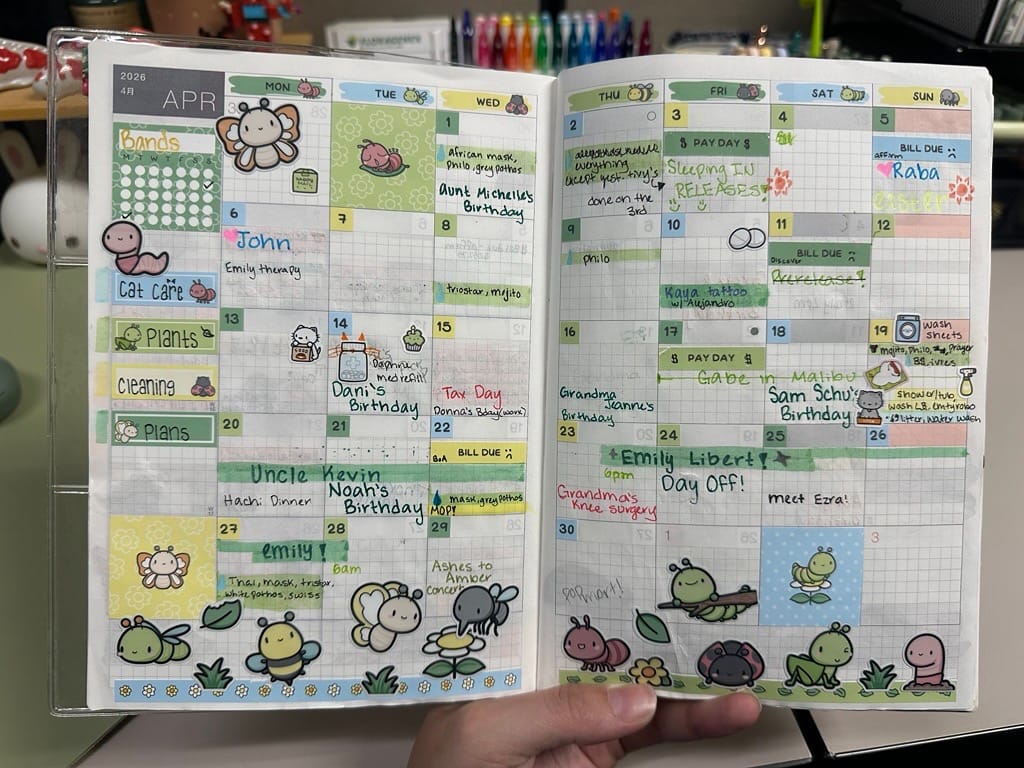 2026
4月
APR
MON
TUE
WED
THU
FRI
SAT
SUN
Bands
M T W T F S S
Cat care
Plants
Cleaning
Plans
1
african mask,
philo, grey pothos
Aunt Michelle's
Birthday
2
everything
done on the
3rd
3
$ PAY DAY $
Sleeping IN
RELEASES!
4
5
BILL DUE
affirm
Raba
EASTER
6
John
Emily therapy
7
8
triostar, mojito
9
philo
10
Kaya tattoo
w/ Alejandro
11
BILL DUE
Discover
Prerelease!
12
13
14
Daphne
med refill!
Dani's
Birthday
15
Tax Day
Donna's Bday (work)
16
Grandma
Jeanne's
Birthday
17
$ PAY DAY $
Gabe in Malibu
18
Sam Schu's
Birthday
19
wash
sheets
mojito, philo,
Prayer
shower/tub,
litter, water wash
20
21
Uncle Kevin
Hachi Dinner
Noah's
Birthday
22
BofA
BILL DUE
mask, grey pothos
MOP!
23
6pm
Grandma's
Knee surgery
24
Emily Libert!
Day Off!
25
meet Ezra!
26
27
emily!
Thai, mask, tristar,
white pothos, swiss
28
6am
29
Ashes to
Amber
concert
30
popmart!
1
3